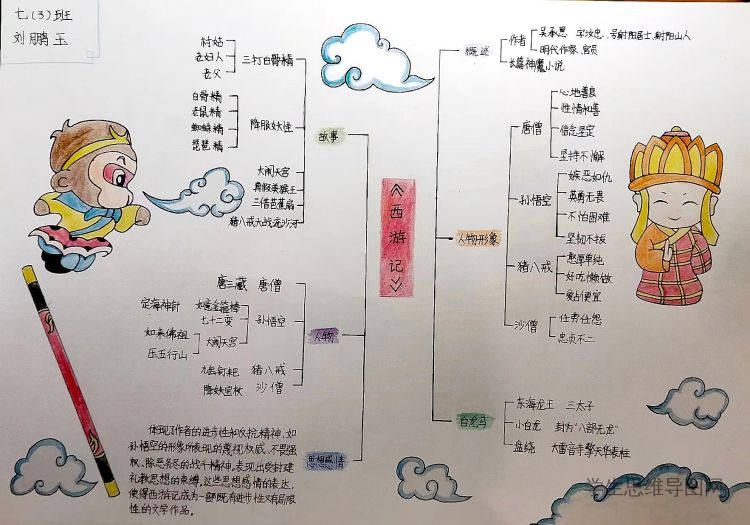 七(3)班
刘鹏玉
《西游记》
故事
三打白骨精
村姑
老妇人
老父
降服妖怪
白骨精
老鼠精
蜘蛛精
琵琶精
大闹天宫
真假美猴王
三借芭蕉扇
猪八戒大战流沙河
人物
唐三藏 唐僧
孙悟空
定海神针 如意金箍棒
七十二变
大闹天宫
如来佛祖
压五行山
九齿钉耙 猪八戒
降妖宝杖 沙僧
思想感情
体现了作者的进步性和反抗精神,如
孙悟空的形象所表现的蔑视权威、不畏强
权、除恶务尽的战斗精神,表现出反封建
礼教思想的束缚。这些思想感情的表达,
使得西游记成为一部既有进步性又有局限
性的文学作品。
概述
作者
吴承恩 字汝忠,号射阳居士,射阳山人
明代作家、官员
长篇神魔小说
人物形象
唐僧
心地善良
性情和善
信念坚定
坚持不懈
孙悟空
嫉恶如仇
英勇无畏
不怕困难
坚韧不拔
猪八戒
憨厚单纯
好吃懒做
爱占便宜
沙僧
任劳任怨
忠贞不二
白龙马
东海龙王 三太子
小白龙 封为“八部天龙”
盘绕 大雷音寺擎天华表柱
学生思维导图网